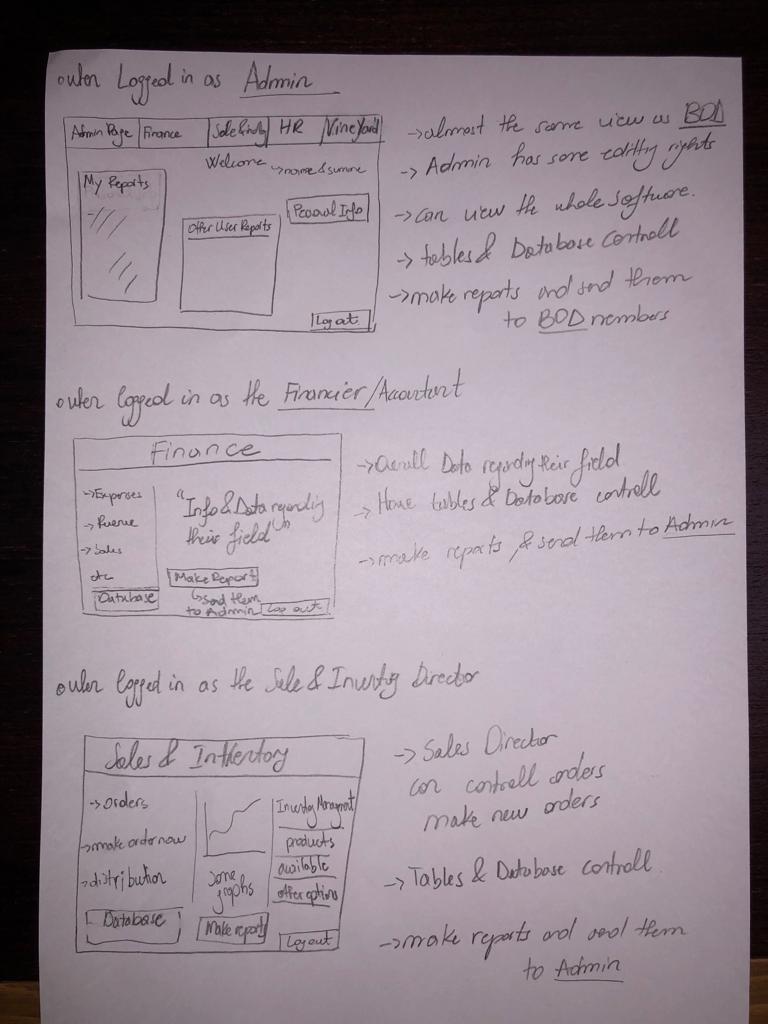 when Logged in as Admin
Admin Page Finance HR VineYard
Welcome → name & surname
My Reports
Personal Info
Other User Reports
Log out
→ almost the same view as BOD
→ Admin has some editing rights
→ can view the whole software.
→ tables & Database controll
→ make reports and send them
to BOD members
when logged in as the Financier/Accountant
Finance
→ Expenses
→ Revenue
→ Sales
etc
Database
"Info & Data regarding
their field"
Make Report
↳ send them
to Admin
Log out
→ Overall Data regarding their field
→ Have tables & Database controll
→ make reports & send them to Admin
when logged in as the Sale & Director
Sales &
→ orders
→ make order now
→ distribution
Database
some
graphs
Make report
products
available
other options
Log out
→ Sales Director
can controll orders
make new orders
→ Tables & Database controll
→ make reports and send them
to Admin